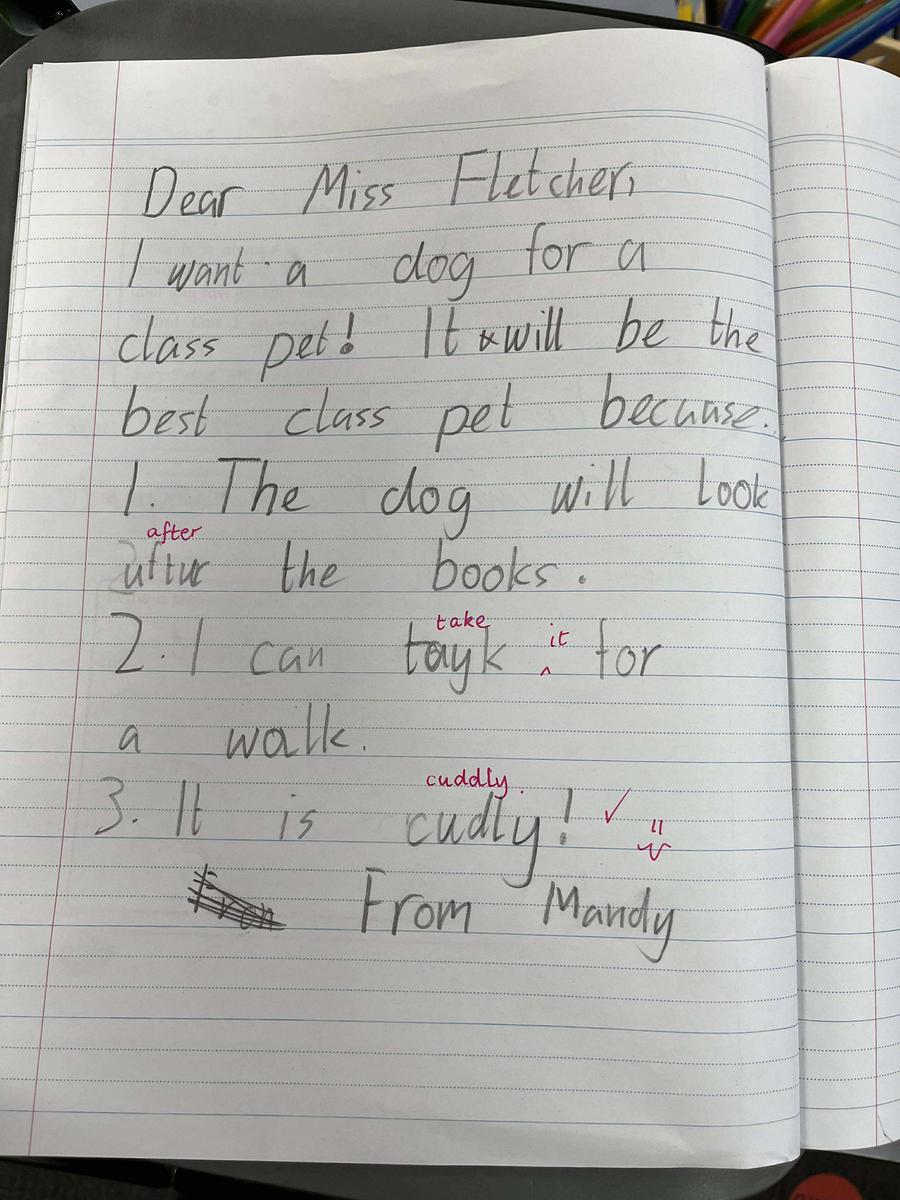 Dear Miss Fletcher,
I want a dog for a
class pet! It will be the
best class pet because..
1. The dog will look
after
aftur the books.
take it
2. I can tayk ^ for
a walk.
cuddly.
3. It is cudly! ✓
From From Mandy